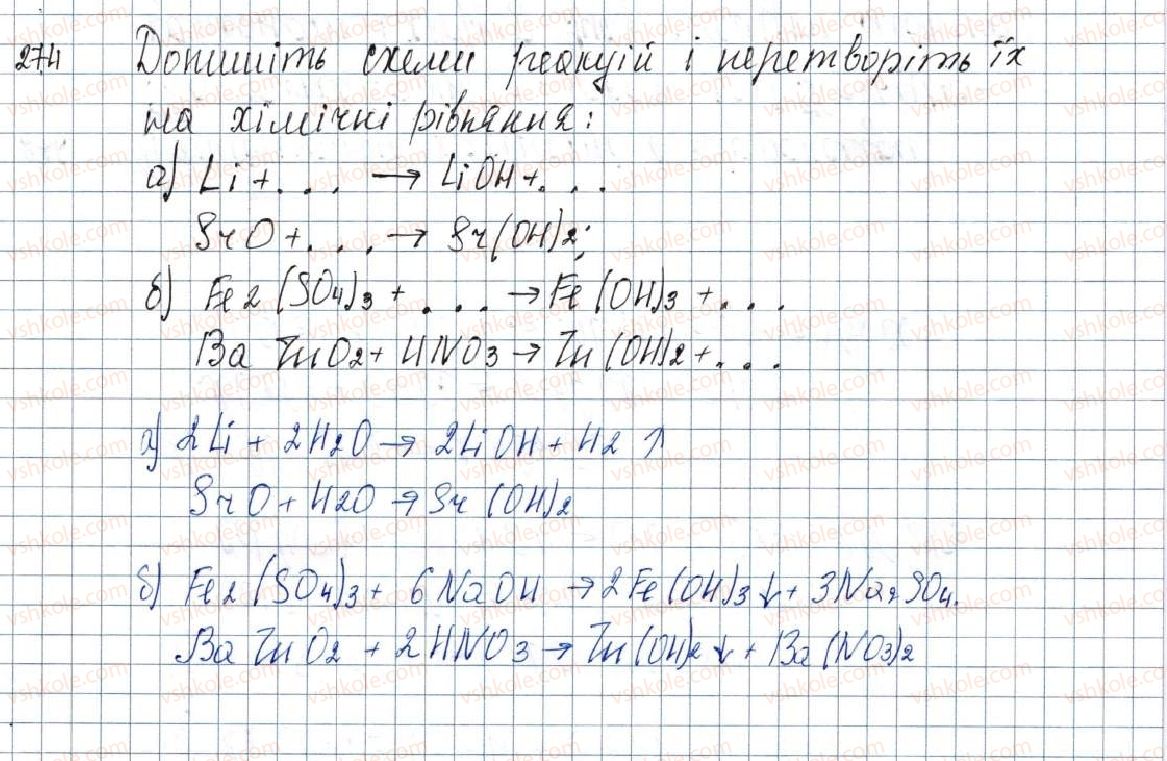 274 Допишіть схеми реакцій і перетворіть їх
на хімічні рівняння:
а) Li + . . . → LiOH + . . .
SrO + . . . → Sr(OH)2;
б) Fe2(SO4)3 + . . . → Fe(OH)3 + . . .
BaZnO2 + HNO3 → Zn(OH)2 + . . .
а) 2Li + 2H2O → 2LiOH + H2 ↑
SrO + H2O → Sr(OH)2
б) Fe2(SO4)3 + 6NaOH → 2Fe(OH)3↓ + 3Na2SO4.
BaZnO2 + 2HNO3 → Zn(OH)2↓ + Ba(NO3)2
vshkole.com